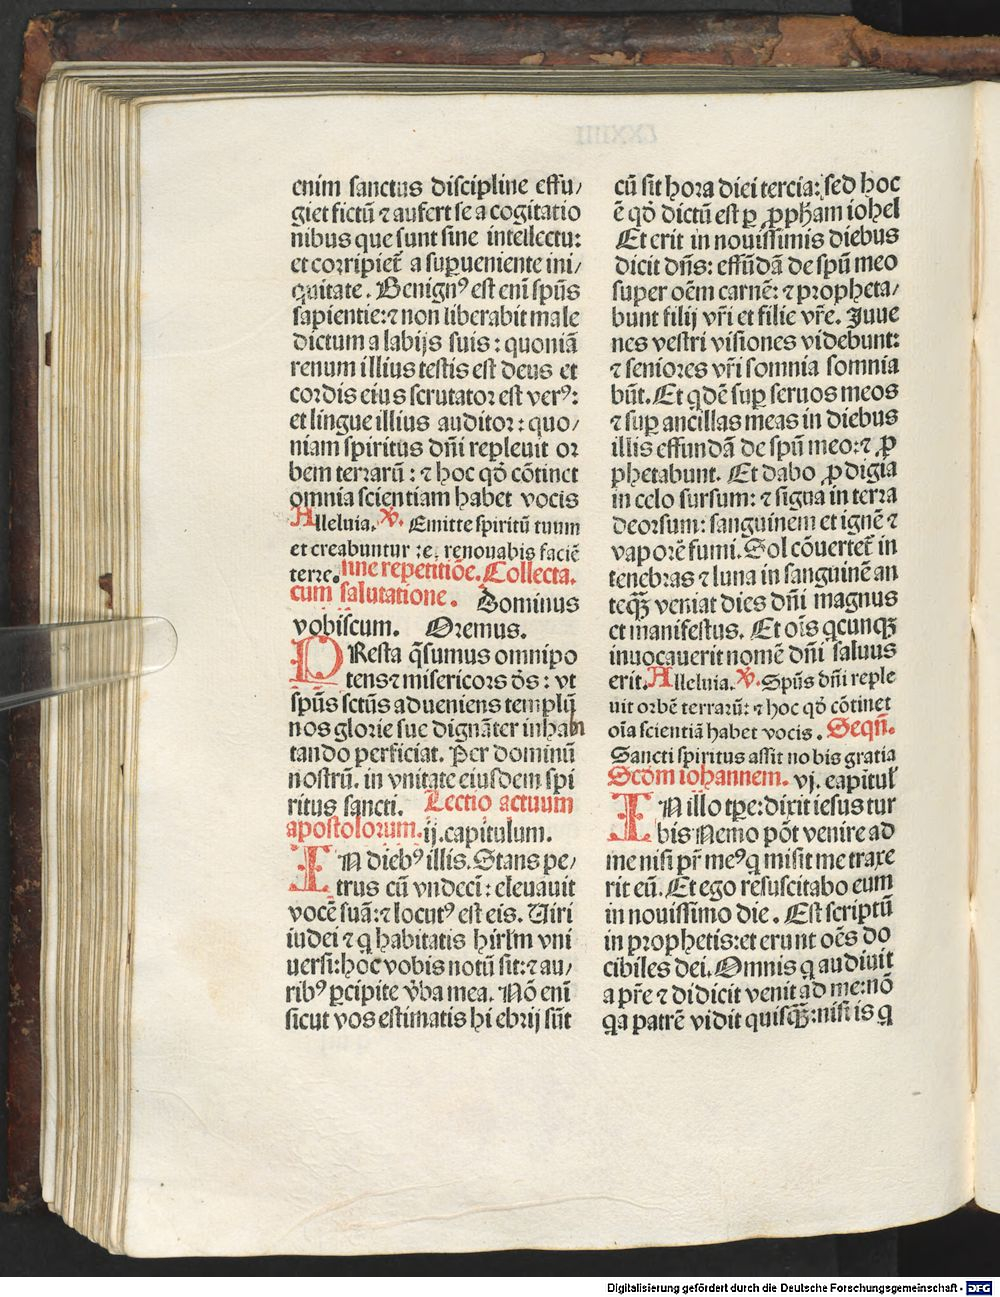 enim sanctus discipline effu/
giet fictū ⁊ aufert se a cogitatio
nibus que sunt sine intellectu:
et corripiet̄ a superueniente ini/
quitate. Benignꝰ est enī spūs
sapientie:⁊ non liberabit male
dictum a labijs suis: quoniā
renum illius testis est deus et
cordis eius scrutator est verꝰ:
et lingue illius auditor: quo/
niam spiritus dn̄i repleuit or
bem terrarū: ⁊ hoc qd̄ cōtinet
omnia scientiam habet vocis
Alleluia. ℣. Emitte spiritū tuum
et creabuntur ⁊ renouabis faciē
terre. sine repetitiōe. Collecta.
cum salutatione. Dominus
vobiscum. Oremus.
PResta q̄sumus omnipo
tens⁊ misericors ds̄: vt
spūs sctūs adueniens templū
nos glorie sue dignāter inhabi
tando perficiat. Per dominū
nostrū. in vnitate eiusdem spi
ritus sancti. Lectio actuum
apostolorum. ij. capitulum.
IN diebꝰ illis. Stans pe/
trus cū vndeci: eleuauit
vocē suā:⁊ locutꝰ est eis. Uiri
iudei ⁊ q̄ habitatis hirlm̄ vni
uersi: hoc vobis notū sit:⁊ au/
ribꝰ ꝑcipite v̄ba mea. Nō enī
sicut vos estimatis hi ebrij sūt
cū sit hora diei tercia: sed hoc
ē qd̄ dictū est ꝑ ꝓph̄am iohel
Et erit in nouissimis diebus
dicit dn̄s: effūdā de spū meo
super oēm carnē: ⁊ propheta/
bunt filij vr̄i et filie vr̄e. Iuue
nes vestri visiones videbunt:
⁊ seniores vr̄i somnia somnia
būt. Et q̄dē suꝑ seruos meos
⁊ suꝑ ancillas meas in diebus
illis effundā de spū meo:⁊ ꝓ
phetabunt. Et dabo ꝓdigia
in celo sursum: ⁊ signa in terra
deorsum: sanguinem et ignē ⁊
vaporē fumi. Sol cōuertet̄ in
tenebras ⁊ luna in sanguinē an
teqꝫ veniat dies dn̄i magnus
et manifestus. Et oīs q̄cunqꝫ
inuocauerit nomē dn̄i saluus
erit. Alleluia. ℣. Spūs dn̄i reple
uit orbē terrarū: ⁊ hoc qd̄ cōtinet
oīa scientiā habet vocis. Seqn̄.
Sancti spiritus assit nobis gratia
Scd̄m iohannem. vj. capitul̄
IN illo tpe: dixit iesus tur
bis Nemo pōt venire ad
me nisi pr̄ meꝰ q̄ misit me traxe
rit eū. Et ego resuscitabo eum
in nouissimo die. Est scriptū
in prophetis: et erunt oēs do
cibiles dei. Omnis q̄ audiuit
a pr̄e ⁊ didicit venit ad me: nō
q̄a patrē vidit quisqꝫ: nisi is q̄
Digitalisierung gefördert durch die Deutsche Forschungsgemeinschaft - DFG